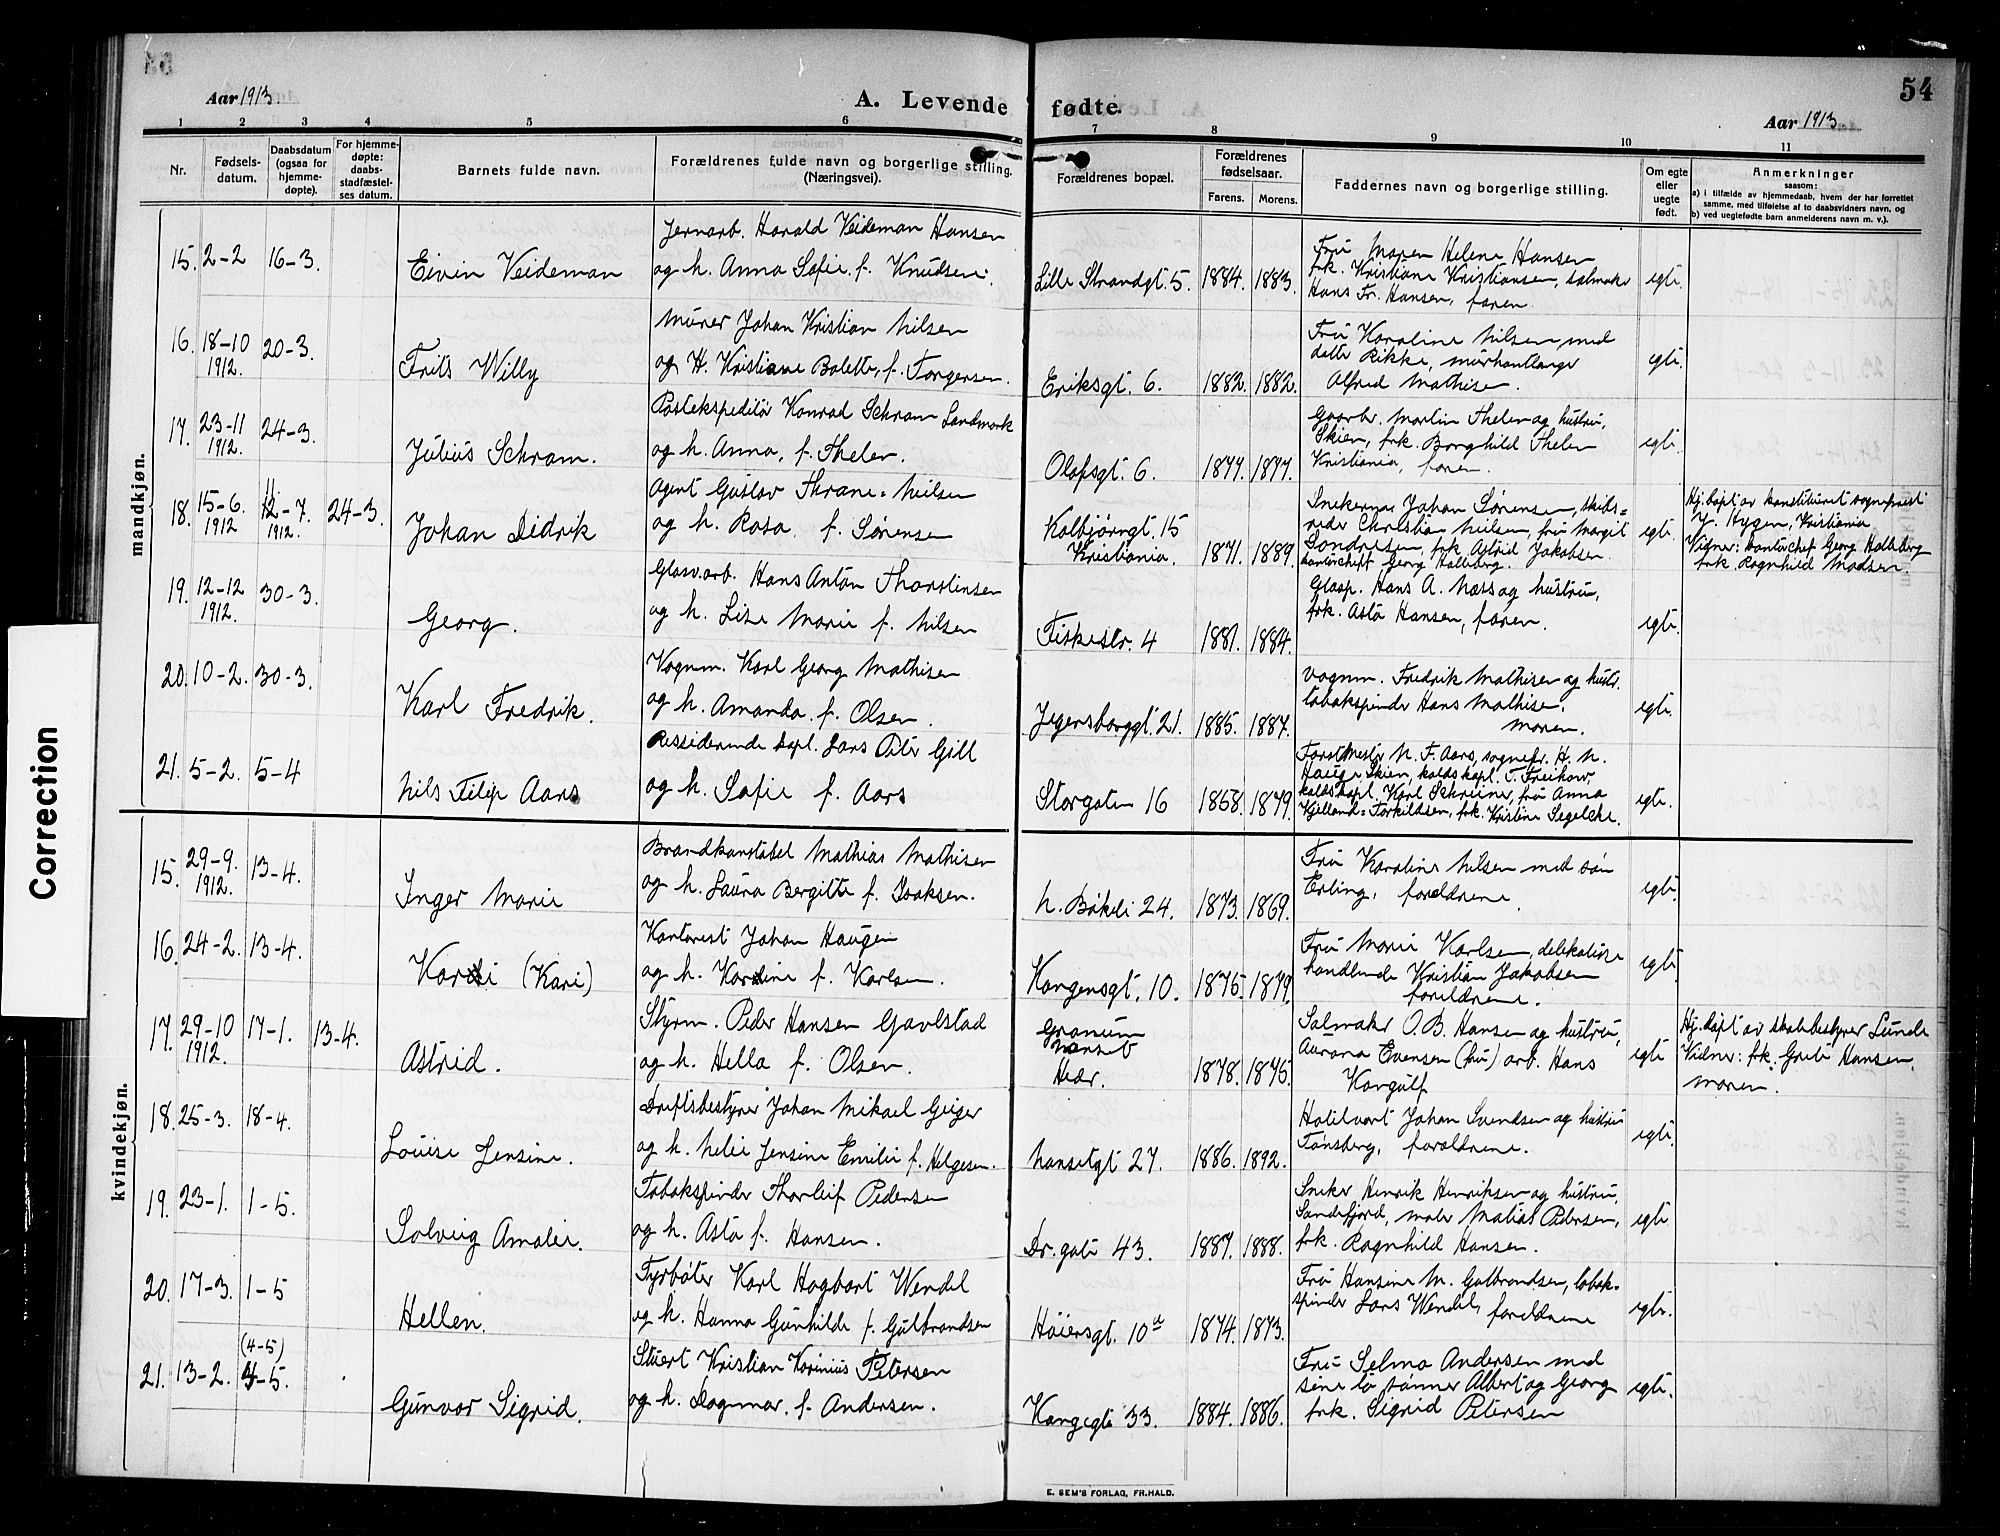 54
Aar 1913
A. Levende fødte.
Aar 1913
1 2 3 4 5 6 7 8 9 10 11
Nr.
Fødsels-
datum.
Daabsdatum
(ogsaa for
hjemme-
døpte).
For hjemme-
døpte:
daabs-
stadfæstel-
ses datum.
Barnets fulde navn.
Forældrenes fulde navn og borgerlige stilling.
(Næringsvei).
Forældrenes bopæl.
Forældrenes
fødselsaar.
Farens. Morens.
Faddernes navn og borgerlige stilling.
Om egte
eller
uegte
født.
Anmerkninger
saasom:
a) i tilfælde av hjemmedaab, hvem der har forrettet
samme, med tilføielse af to daabsvidners navn, og
b) ved uegtefødte barn anmelderens navn m. v.).
mandkjøn.
15. 2-2 16-3.
Eivin Veideman
Jernarb. Harald Veideman Hansen
og h. Anna Sofie f. Knudsen.
Lille Strandgt. 5. 1884. 1883.
Fru Maren Helene Hansen
frk. Kristiane Kristiansen, salmaker
Hans Fr. Hansen, faren.
egte.
16. 18-10 20-3.
1912.
Frits Willy
Murer Johan Kristian Nilsen
og H. Kristiane Bolette, f. Torgersen.
Eriksgt. 6. 1882. 1882.
Fru Karoline Nilsen med
datter Rikke, murhantlanger
Alfred Mathisen.
egte.
17. 23-11 24-3.
1912.
Julius Schram.
Postekspeditør Konrad Schram Landmark
og h. Anna, f. Thelen.
Olafsgt. 6. 1877. 1877.
Gaarbr. Martin Thelen og hustru,
Skien, frk. Borghild Thelen
Kristiania, faren.
egte.
18. 15-6. 12-7. 24-3.
1912 1912.
Johan Didrik
Agent Gustav Thrane-Nielsen
og h. Rosa f. Sørensen
Kolbjørngt. 15
Kristiania. 1871. 1889.
Snekkerm. Johan Sørensen, skibs-
reder Christian Nielsen, fru Margit
frk. Astrid Jakobsen.
kontorchef Georg Halberg.
egte.
Hj. døpt av konstitueret sogneprest
Y. Hygen, Kristiania
Vidner: kontorchef Georg Halberg
frk. Ragnhild Madsen.
19. 12-12 30-3.
1912.
Georg.
Glasv.arb. Hans Anton Thorstensen
og h. Lise Marie f. Nilsen
Fiskestr. 4 1881. 1884.
Glasp. Hans A. Næss og hustru,
frk. Asta Hansen, faren.
egte.
20. 10-2. 30-3.
Karl Fredrik.
Vognm. Karl Georg Mathisen
og h. Amanda f. Olsen.
Jegersborggt. 21. 1885. 1887.
Vognm. Fredrik Mathisen og hustr.
tobakspinder Hans Mathisen,
moren.
egte.
21. 5-2. 5-4
Nils Filip Aars
Ressiderende kapl. Lars Peter Gill
og h. Sofie f. Aars
Storgaten 16 1868. 1879.
Forstmester N. F. Aars, sognepr. H. N.
Hauge, Skien, kaldskapl. T. Freihow,
kaldskapl. Karl Schreiner, fru Anna
Kjelland-Torkildsen, frk. Kristine Segelcke.
egte.
kvindekjøn.
15. 29-9. 13-4.
1912.
Inger Marie
Brandkonstabel Mathias Mathisen
og h. Laura Bergitte f. Isaksen.
N. Bøkeli 24. 1873. 1869.
Fru Karoline Nilsen med søn
Erling, forældrene.
egte.
16. 24-2. 13-4.
(Kari)
Kontorist Johan Haugen
og h. f. Karlsen.
Kongensgt. 10. 1875. 1879.
Fru Marie Karlsen, delikatesse
handlende Kristian Jakobsen
forældrene.
egte.
17. 29-10 17-1. 13-4.
1912.
Astrid.
Styrm. Peder Hansen Gavlstad
og h. Hella f. Olsen.
Granum
Nanset
Hedr. 1878. 1875.
Salmaker O. B. Hansen og hustru,
Aurora Evensen (fru) arb. Hans
egte
Hj. døpt av skolebestyrer Lunde
Vidner: frk. Grete Hansen,
moren.
18. 25-3. 18-4.
Louise Jensine.
Driftsbestyrer Johan Mikael Geiger
og h. Nelie Jensine Emilie f. Helgesen.
Nansetgt 27. 1886. 1892.
Hotelvert Johan Svendsen og hustru
Tønsberg, forældrene.
egte.
19. 23-1. 1-5.
Solveig Amalie.
Tobakspinder Thorleif Pedersen
og h. Asta f. Hansen.
Dr. gate 43. 1887. 1888.
Sneker Henrik Henriksen og hustru,
Sandefjord, maler Matias Pedersen,
frk. Ragnhild Hansen.
egte
20. 17-3. 1-5
Hellen.
Fyrbøter Karl Hagbart Wendel
og h. Hanna Gunhilde f. Gulbrandsen
Høiersgt. 10a 1874. 1873.
Fru Hansine M. Gulbrandsen, tobak-
spinder Lars Wendel, forældrene
egte.
(4-5)
21. 13-2. 4-5.
Gunvor Sigrid.
Stuert Kristian Korinius Petersen
og h. Dagmar f. Andersen.
Kongegt 33. 1884. 1886.
Fru Selma Andersen med
sine to sønner Albert og Georg
frk. Sigrid Petersen
egte.
E. SEM'S FORLAG, FR.HALD.
Correction